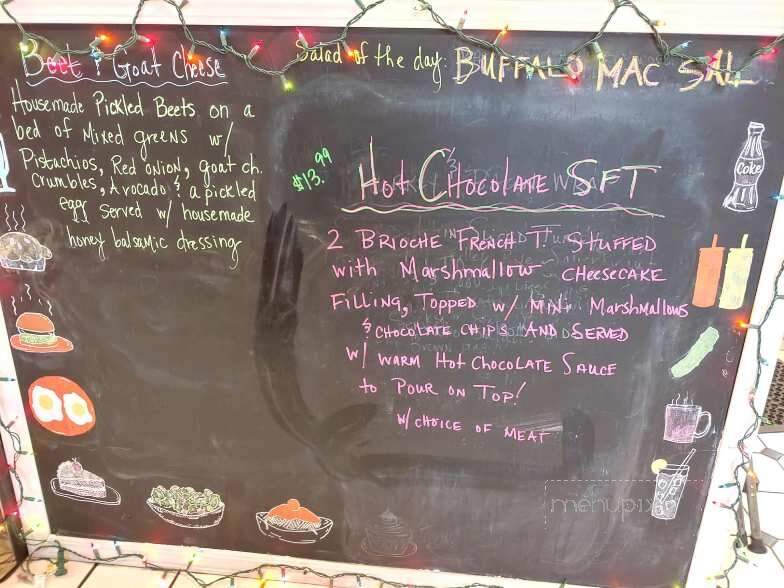 Beet & Goat Cheese
Housemade Pickled Beets on a
bed of Mixed greens w/
Pistachios, Red onion, goat ch.
crumbles, Avocado & a pickled
egg served w/ housemade
honey balsamic dressing
Salad of the day: BUFFALO MAC SAL
$13.99
Hot Chocolate SFT
2 Brioche French T. Stuffed
with Marshmallow cheesecake
Filling, Topped w/ Mini Marshmallows
& chocolate chips and served
w/ warm Hot Chocolate Sauce
to Pour on Top!
w/ choice of meat
Coke
menupix